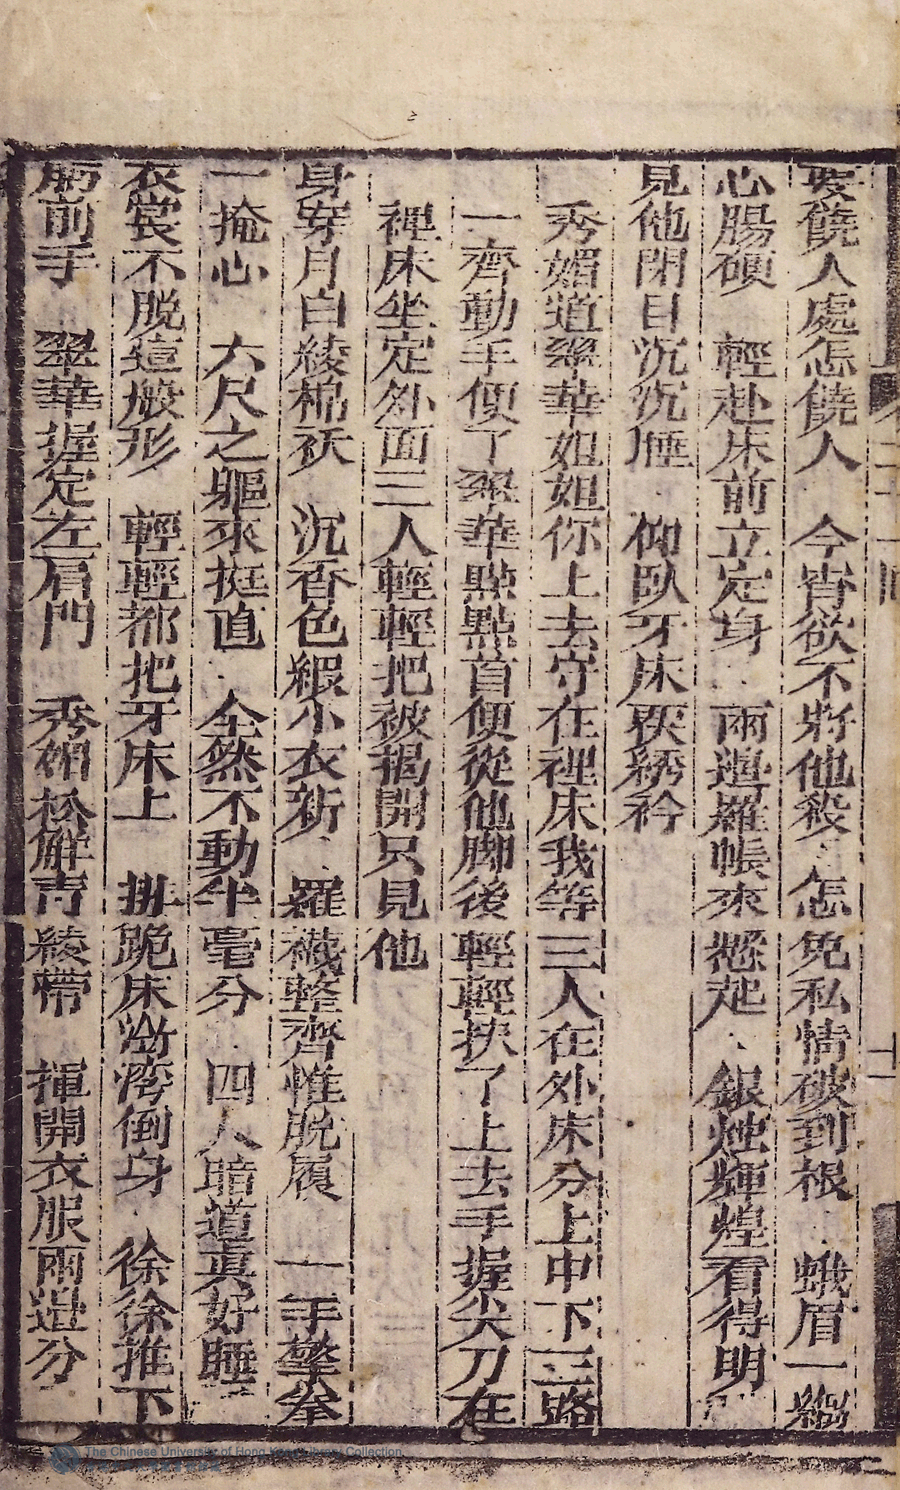 要饒人處怎饒人 今宵欲不將他殺 怎免私情破到根 蛾眉一縐
心腸硬 輕赴床前立定身 兩邊羅帳來懸起 銀燭輝煌看得明
見他閉目沉沉睡 仰臥牙床裀綉衾
秀媚道翠華姐姐你上去守在裡床我等三人在外床分上中下三路
一齊動手便了翠華點點首便從他脚後輕輕挾了上去手握尖刀在
裡床坐定外面三人輕輕把被揭開只見他
身穿月白綾棉袄 沉香色緞小衣新 羅襪整齊惟脫履 一手擎拳
一掩心 六尺之軀來挺直 全然不動半毫分 四人暗道真好睡
衣裳不脫這般形 輕輕都把牙床上 掛跪床沿湾倒身 徐徐推下
前手 翠華握定左肩門 秀媚松解青綾帶 揮開衣服兩邊分
The Chinese University of Hong Kong Library Collection